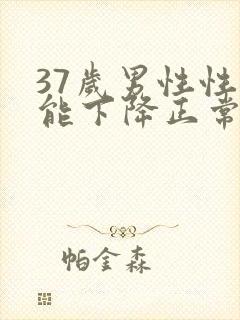 37歲男性性
能下降正常
帕金森